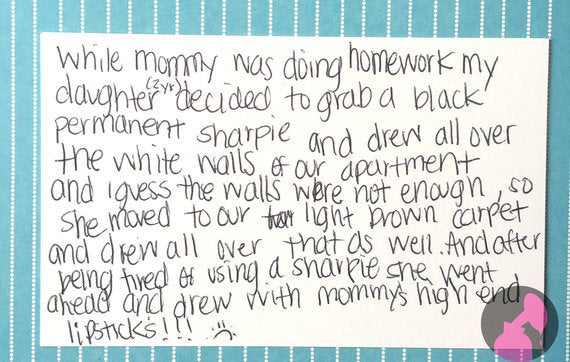 while mommy was doing homework my
daughter (2yr) decided to grab a black
permanent sharpie and drew all over
the white walls of our apartment
and i guess the walls were not enough, so
she moved to our light brown carpet
and drew all over that as well. And after
being tired of using a sharpie she went
ahead and drew with mommy's high end
lipsticks!!! :(